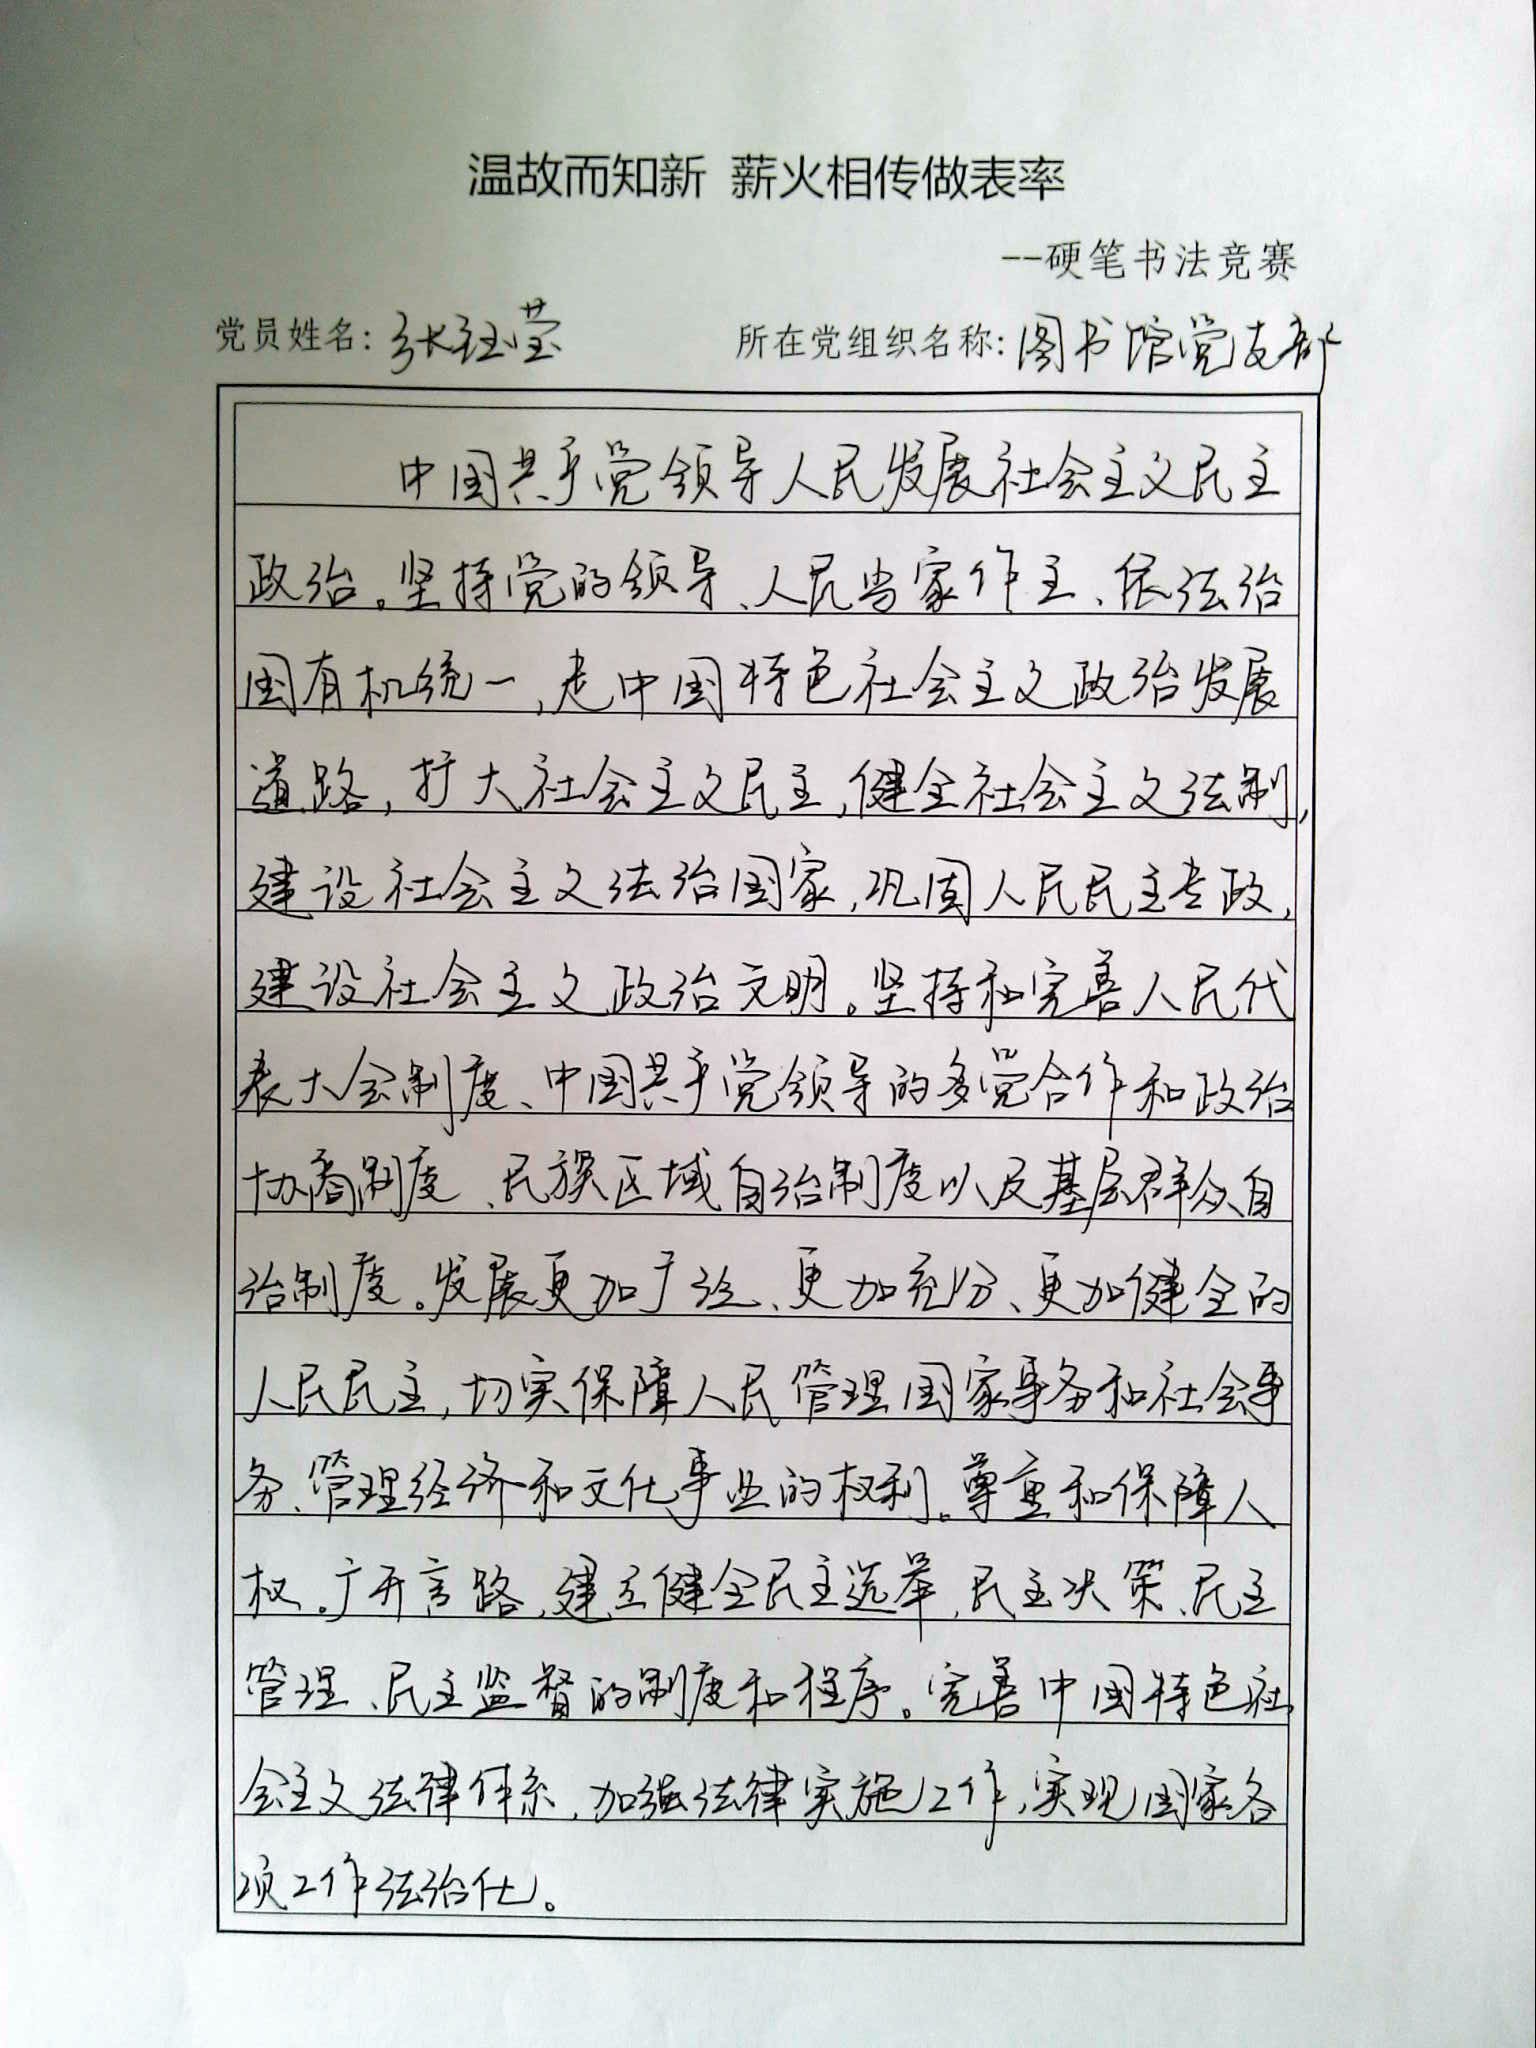 温故而知新 薪火相传做表率
--硬笔书法竞赛
党员姓名：张钰莹 所在党组织名称：图书馆党支部
中国共产党领导人民发展社会主义民主
政治。坚持党的领导、人民当家作主、依法治
国有机统一，走中国特色社会主义政治发展
道路，扩大社会主义民主，健全社会主义法制，
建设社会主义法治国家，巩固人民民主专政，
建设社会主义政治文明。坚持和完善人民代
表大会制度、中国共产党领导的多党合作和政治
协商制度、民族区域自治制度以及基层群众自
治制度。发展更加广泛、更加充分、更加健全的
人民民主，切实保障人民管理国家事务和社会事
务、管理经济和文化事业的权利。尊重和保障人
权。广开言路，建立健全民主选举、民主决策、民主
管理、民主监督的制度和程序。完善中国特色社
会主义法律体系，加强法律实施工作，实现国家各
项工作法治化。